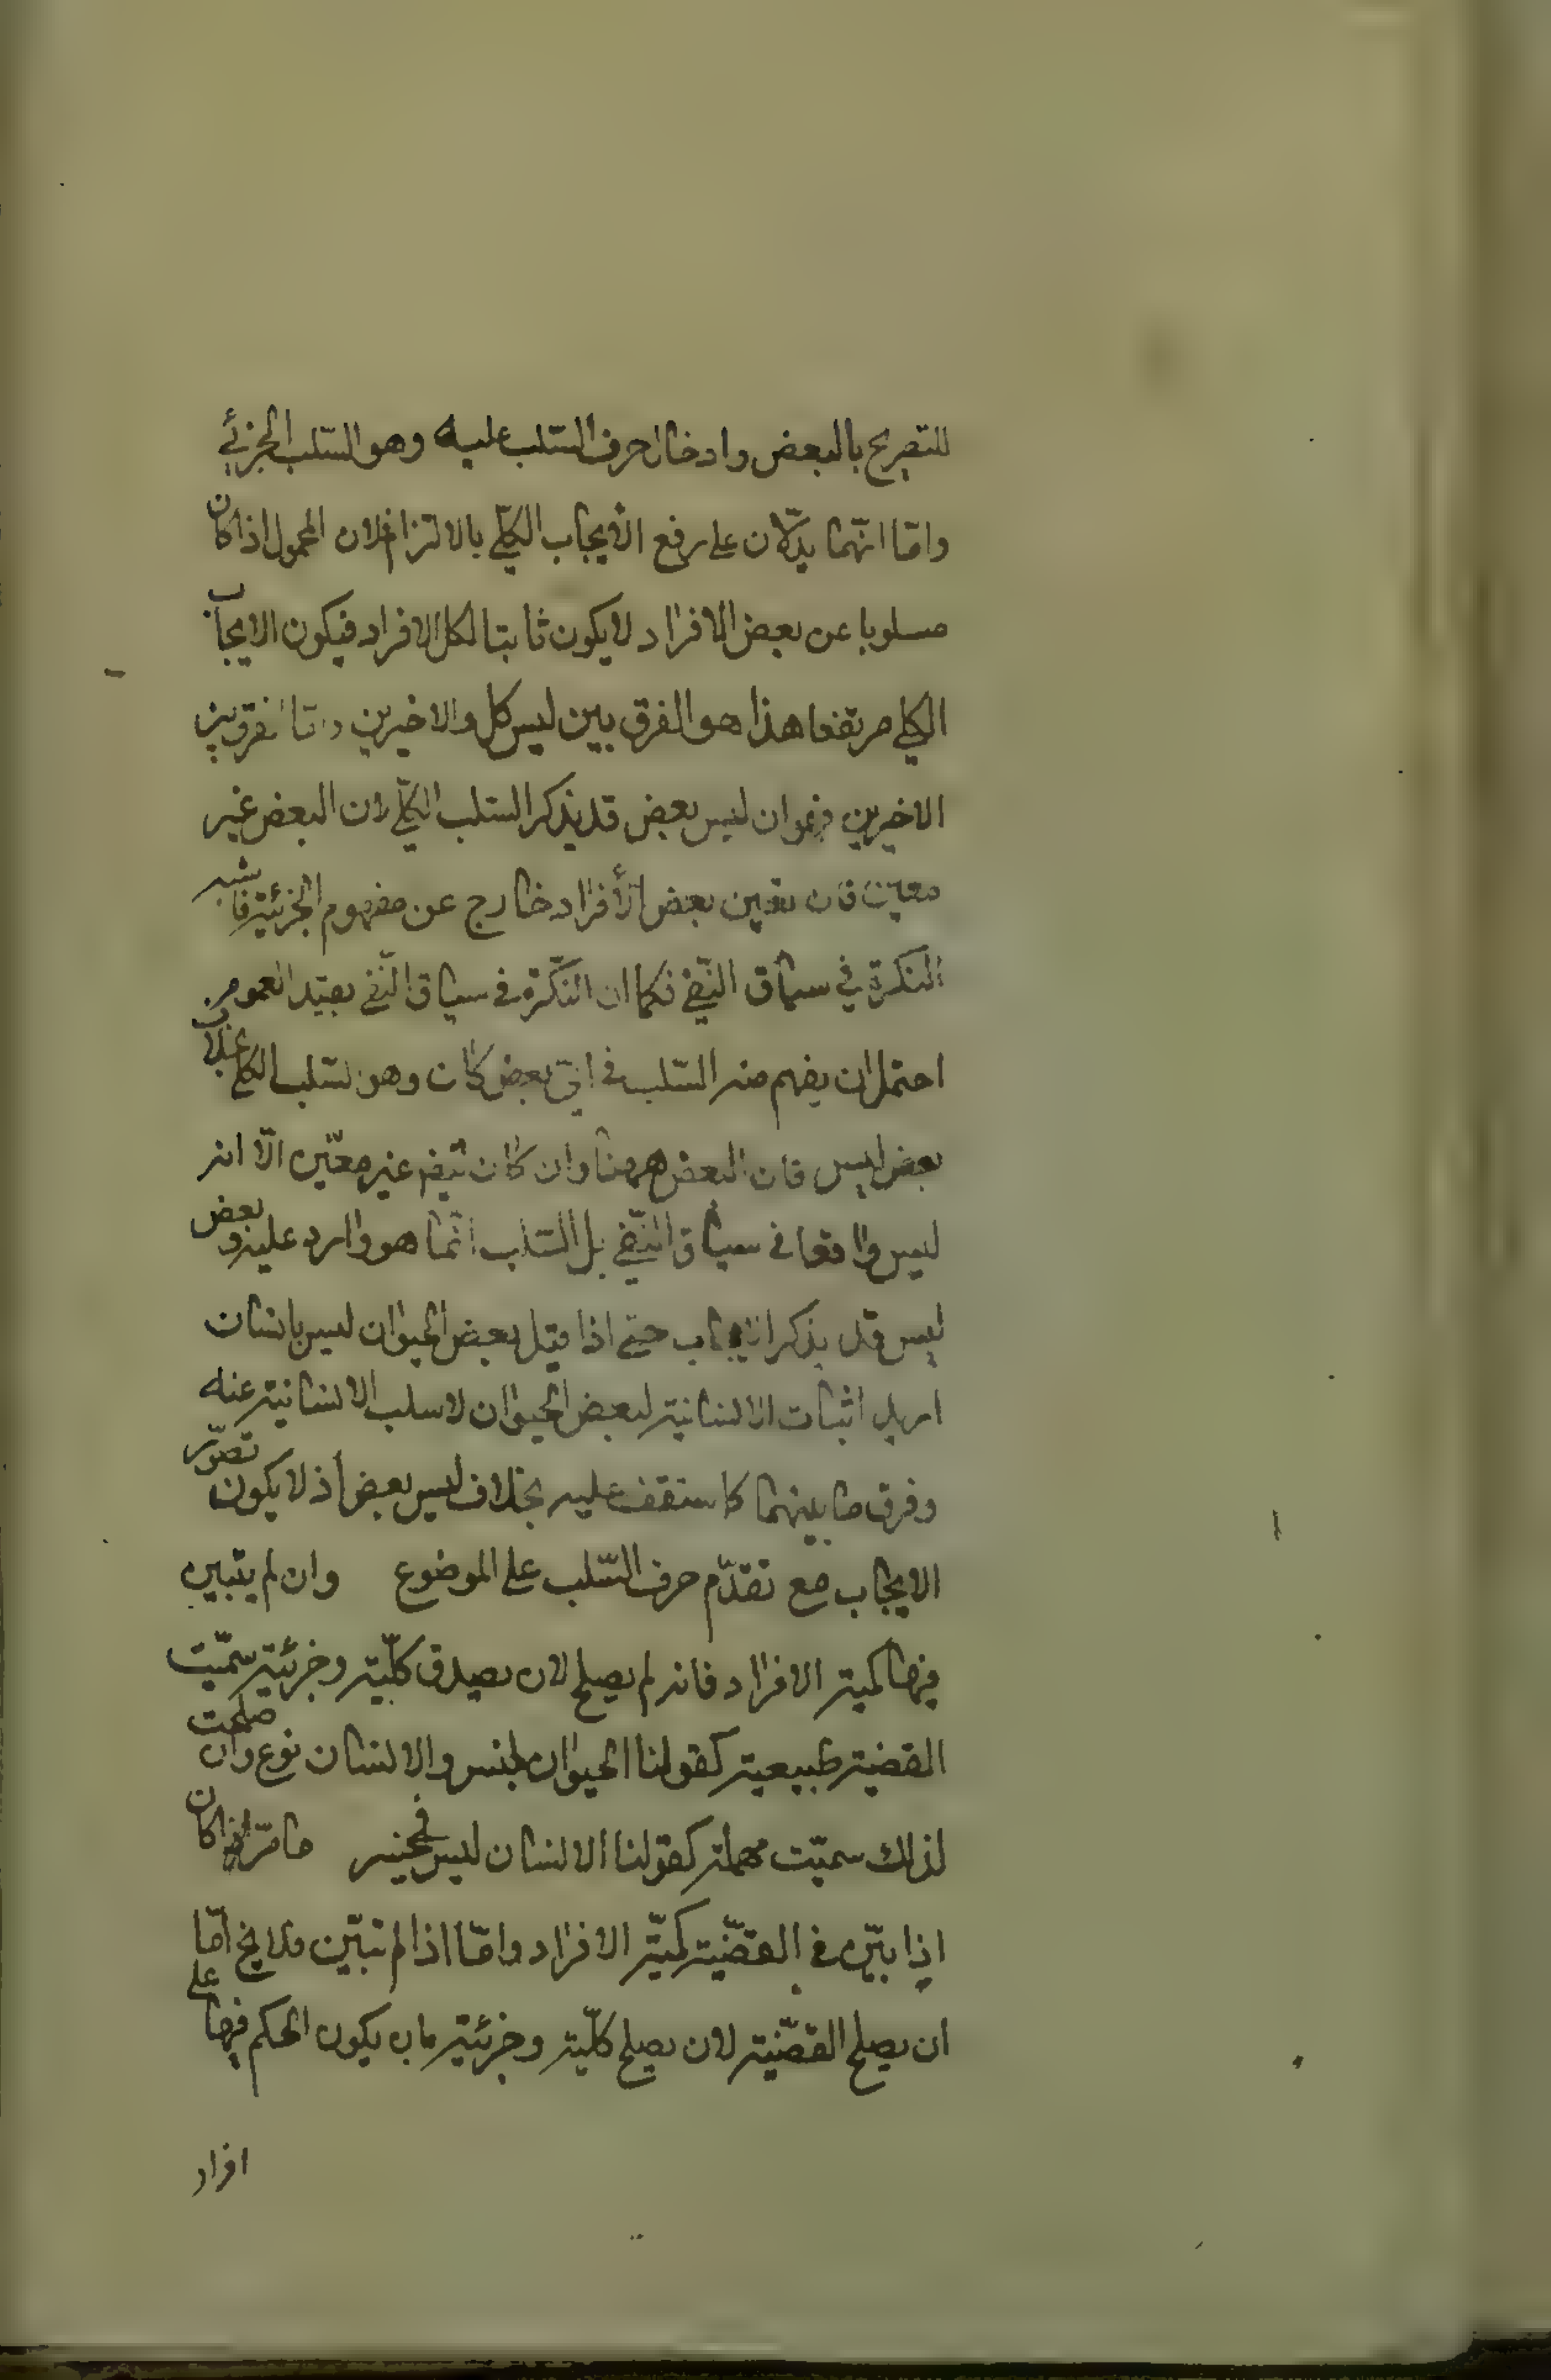 للتصريح بالبعض وادخال حرف السّلب عليه وهو السّلب الجزئي
وامّا انّهما يدلّان على رفع الأيجاب الكلّي بالالتزام فلان المحمول اذا كان
مسلوبا عن بعض الافراد لا يكون ثابتا لكل الافراد فيكون الايجاب
الكلي مرتفعا هذا هو الفرق بين ليس كل والاخيرين وامّا الفرق بين
الاخيرين فهو ان ليس بعض قد يذكر السّلب الكلّي لان البعض غير
معين فان تعين بعض الأفراد خارج عن مفهوم الجزئيّة فاشبه
النكرة في سياق النّفي فكما ان النّكرة في سياق النّفي يفيد العموم
احتمل ان يفهم منه السّلب في ايّ بعض كان وهو السّلب الكلي بخلاف
بعض ليس فان البعض ههنا وان كان ايضا غير معيّن الّا انه
ليس واقعا في سياق النّفي بل السّلب انّما هو وارد عليه وبعض
ليس قد يذكر الايجاب حتى اذا قيل بعض الحيوان ليس بانسان
اريد اثبات الانسانية لبعض الحيوان لا سلب الانسانية عنه
وفرق ما بينهما كما ستقف عليه بخلاف ليس بعض اذ لا يكون تصوّر
الايجاب مع تقدّم حرف السّلب على الموضوع وان لم يتبين
فيها كمية الافراد فانه لم يصلح لان يصدق كلّية وجزئية سمّيت
القضية طبيعية كقولنا الحيوان جنس والانسان نوع وان صلحت
لذلك سميّت مهملة كقولنا الانسان ليس في خسر ما مرّ اذا كان
اذا بيّن في القضيّة كميّة الافراد وامّا اذا لم تبيّن فلا يخ امّا
ان يصلح القضيّة لان يصلح كلّية وجزئية بان يكون الحكم فيها على
افراد